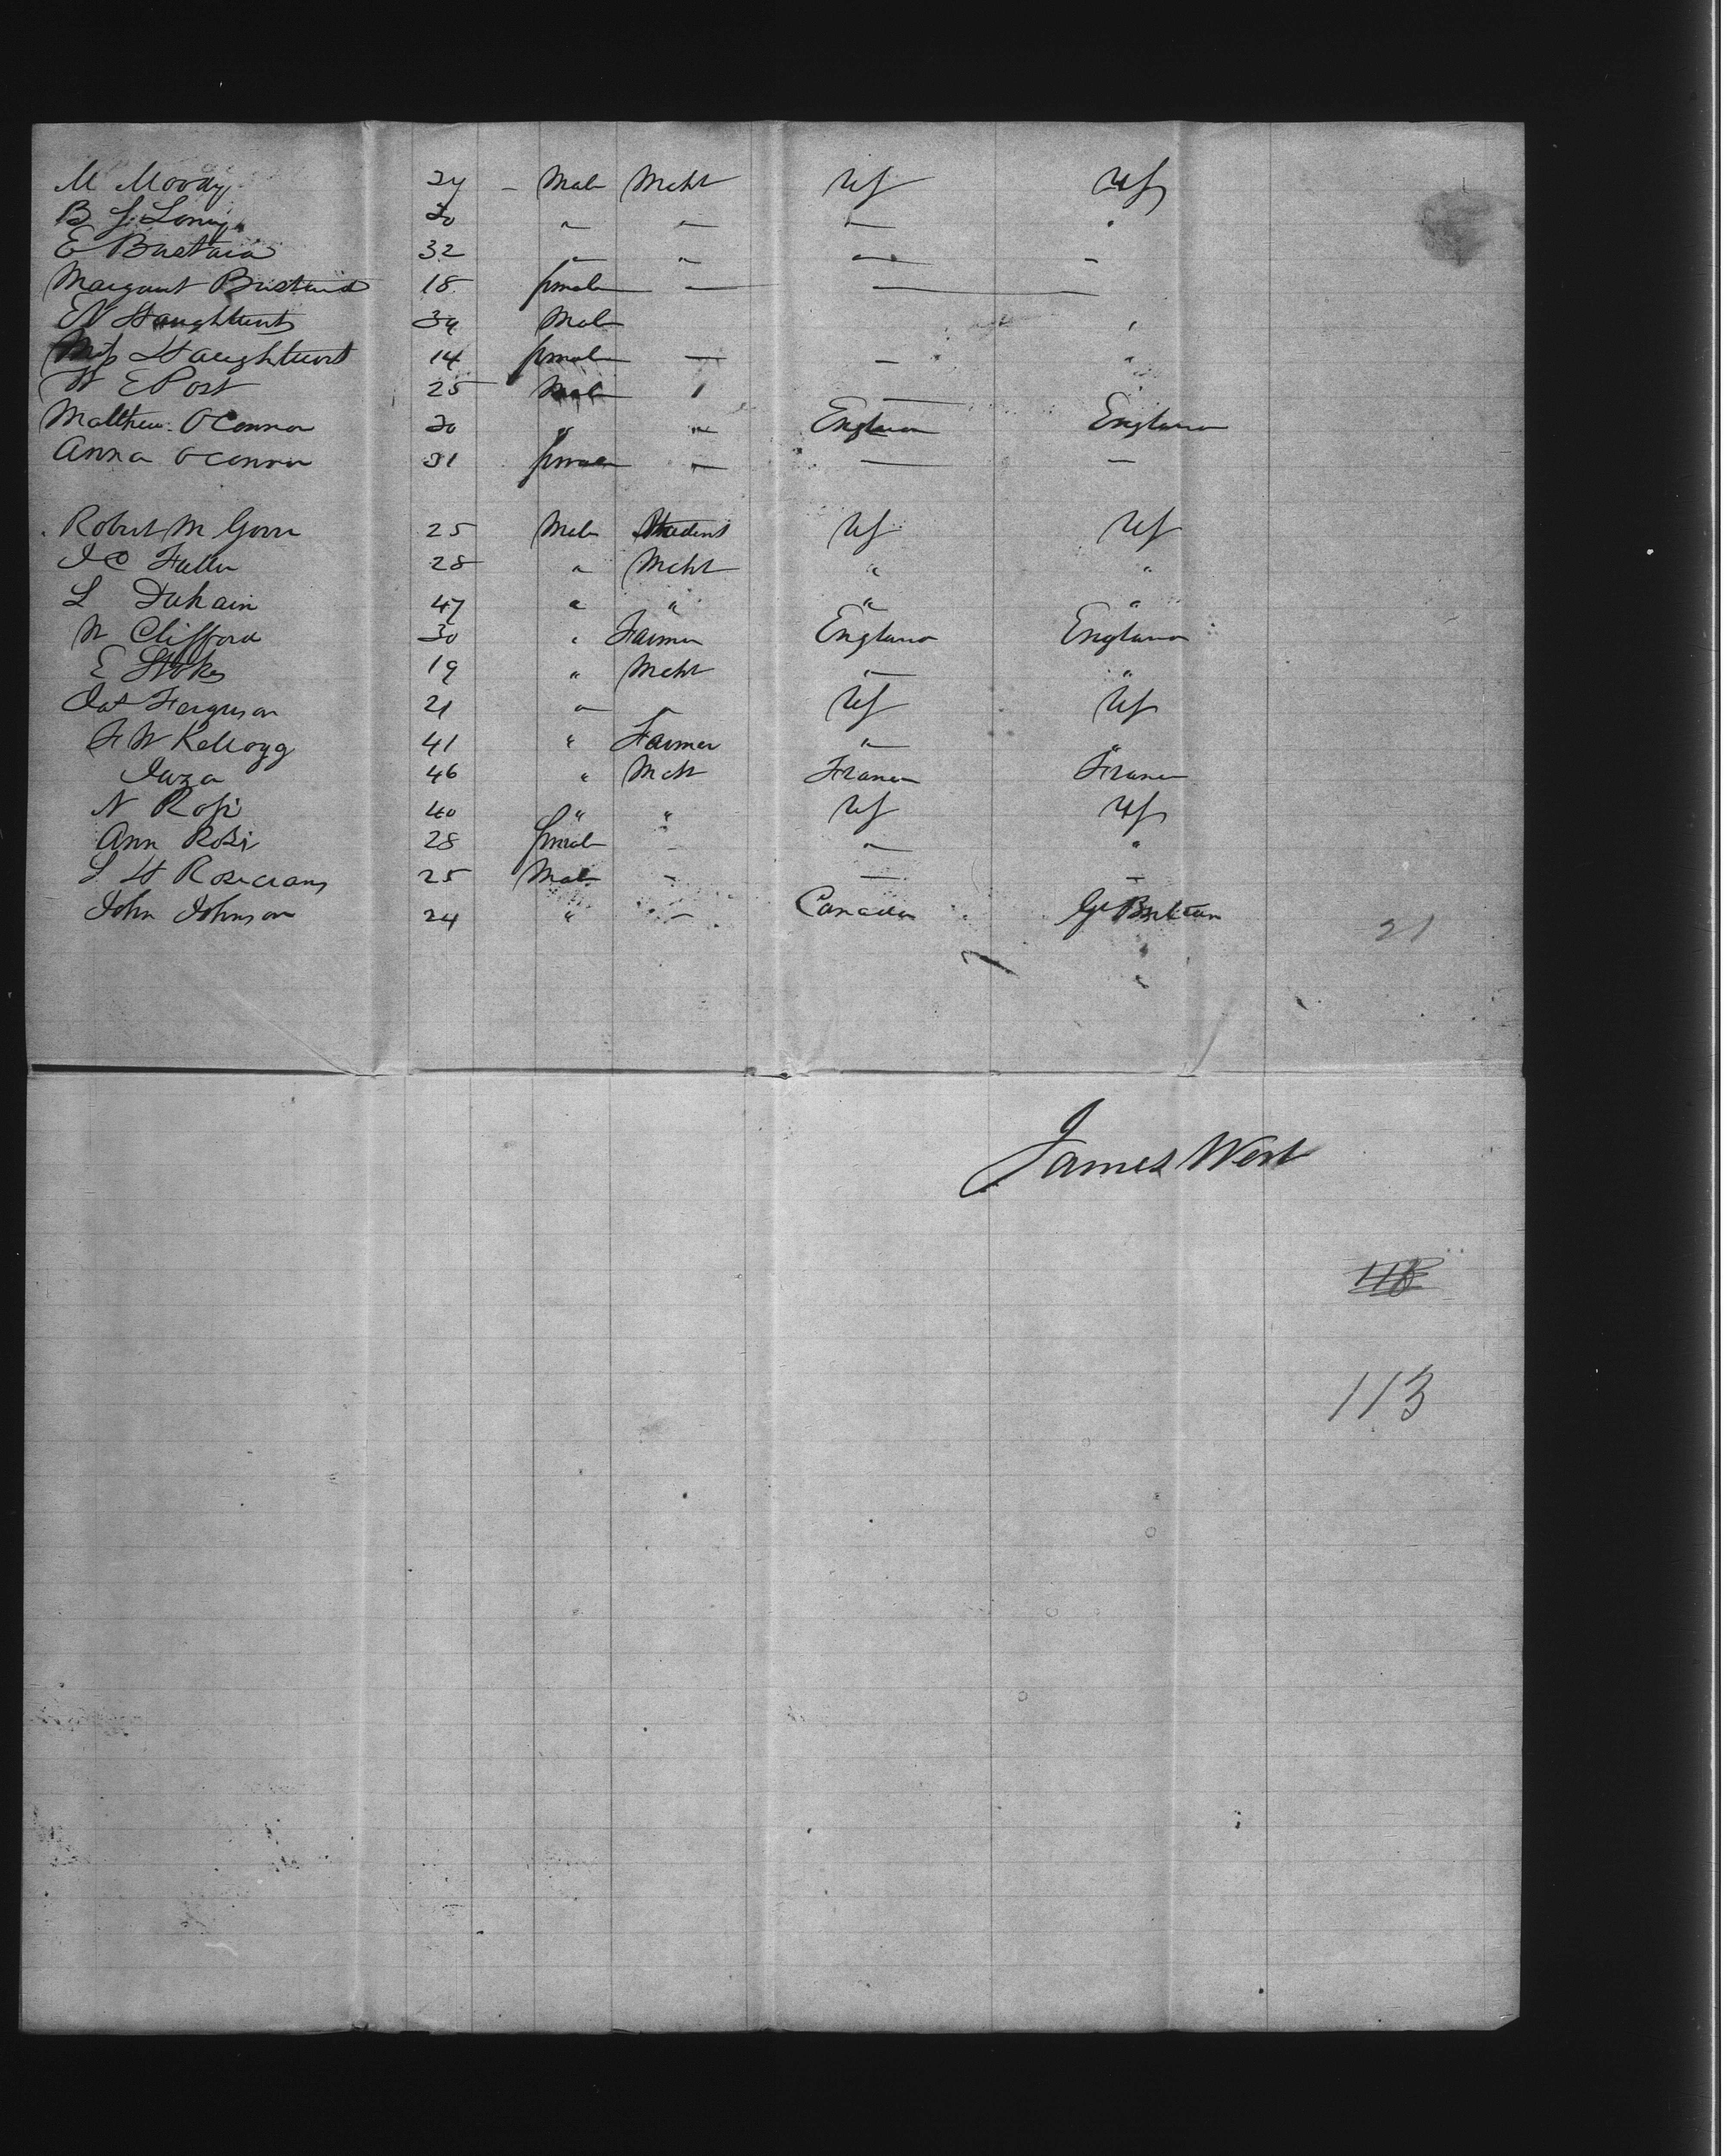 M Moody 24 – Male Mcht US US
B L Loring 30 " " " "
E Bustaia 32 " " " –
Margaret 18 female — —
E N Haughtwont 34 Male "
Miss Haughtwont 14 female — – "
W E Post 25 Male " —
Matthew O Connor 30 " " England England
Anna O Connor 31 female — — —
Robert M Gorr 25 Male Student US US
J C Fuller 28 " Mcht " "
L Duhain 47 " " " "
W Clifford 30 " Farmer England England
E Stokes 19 " Mcht " "
Jas Ferguson 21 " – US US
F W Kellogg 41 " Farmer " "
46 " Mcht France France
N Rossi 40 " " US US
Ann Rossi 28 female – " "
L H Rosecrans 25 Male – — –
John Johnson 24 " – Canada Gt Britain
21
James West
118
113